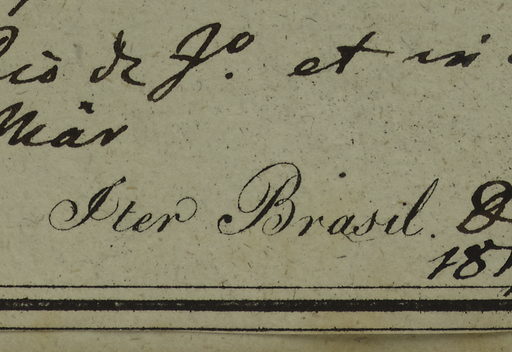 de Jo. et in
Mär
Iter Brasil.
18